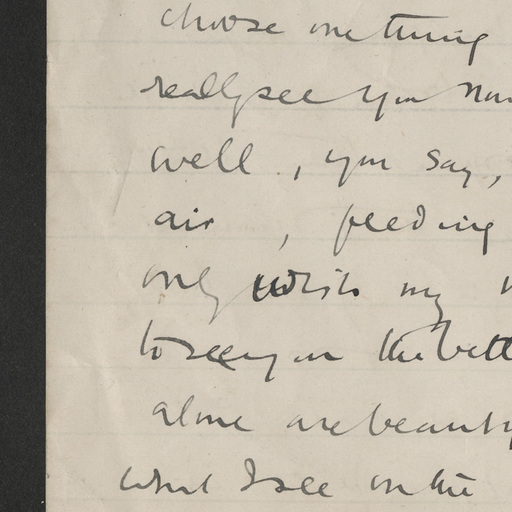 choose one thing
really see you
well, you say,
air, feeding
only wish my
to see you in the
alone are beauty
what I see on the